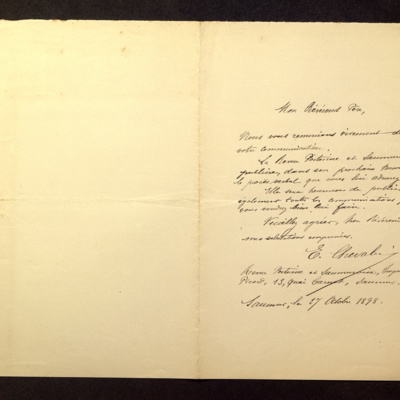 Mon Révérend Père,
Nous vous remercions vivement de
votre communication.
La Revue Poitevine et Saumuroise
publiera, dans son prochain
le procès-verbal que vous lui
Elle sera heureuse de publier
également toutes les communications
vous voudrez bien lui faire.
Veuillez agréer, Mon Révérend
nos salutations empressées.
E. Chevalier
Revue Poitevine et Saumuroise,
Picard, 13, Quai Carnot, Saumur.
Saumur, le 27 Octobre 1898.